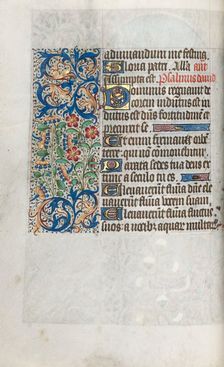 adiuvandum me festina.
Gloria patri. Alla ant
Assumpta est. Psalmus david
Dominus regnavit de
corem indutus est in
dutus est dns fortitudinem et
precinxit se.
Et enim firmavit orbē
terre: qui nō cōmovebitur
Parata sedes tua deus ex
tunc a seculo tu es.
Elevaverūt flumina dn̄e
elevaverūt flumina vocem suam.
Elevaverūt flumina fluctus
suos: a vocibus aquar multarū